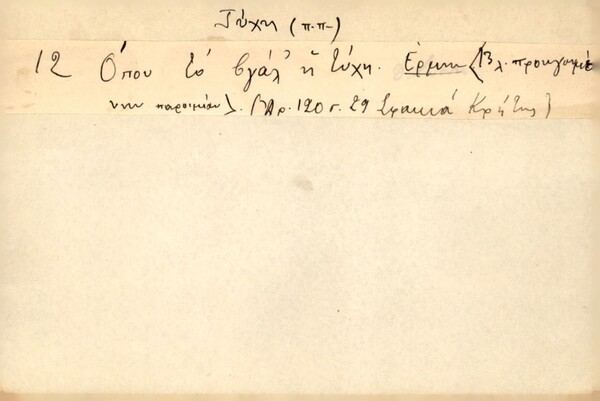 Τύχη (π.π-)
12 Όπου τό βγάλ' ἡ τύχη. Ἑρμην (Βλ. προηγουμέ
νην παροιμίαν). (Ἀρ. 120 σ. 29 Σφακιά Κρήτης)